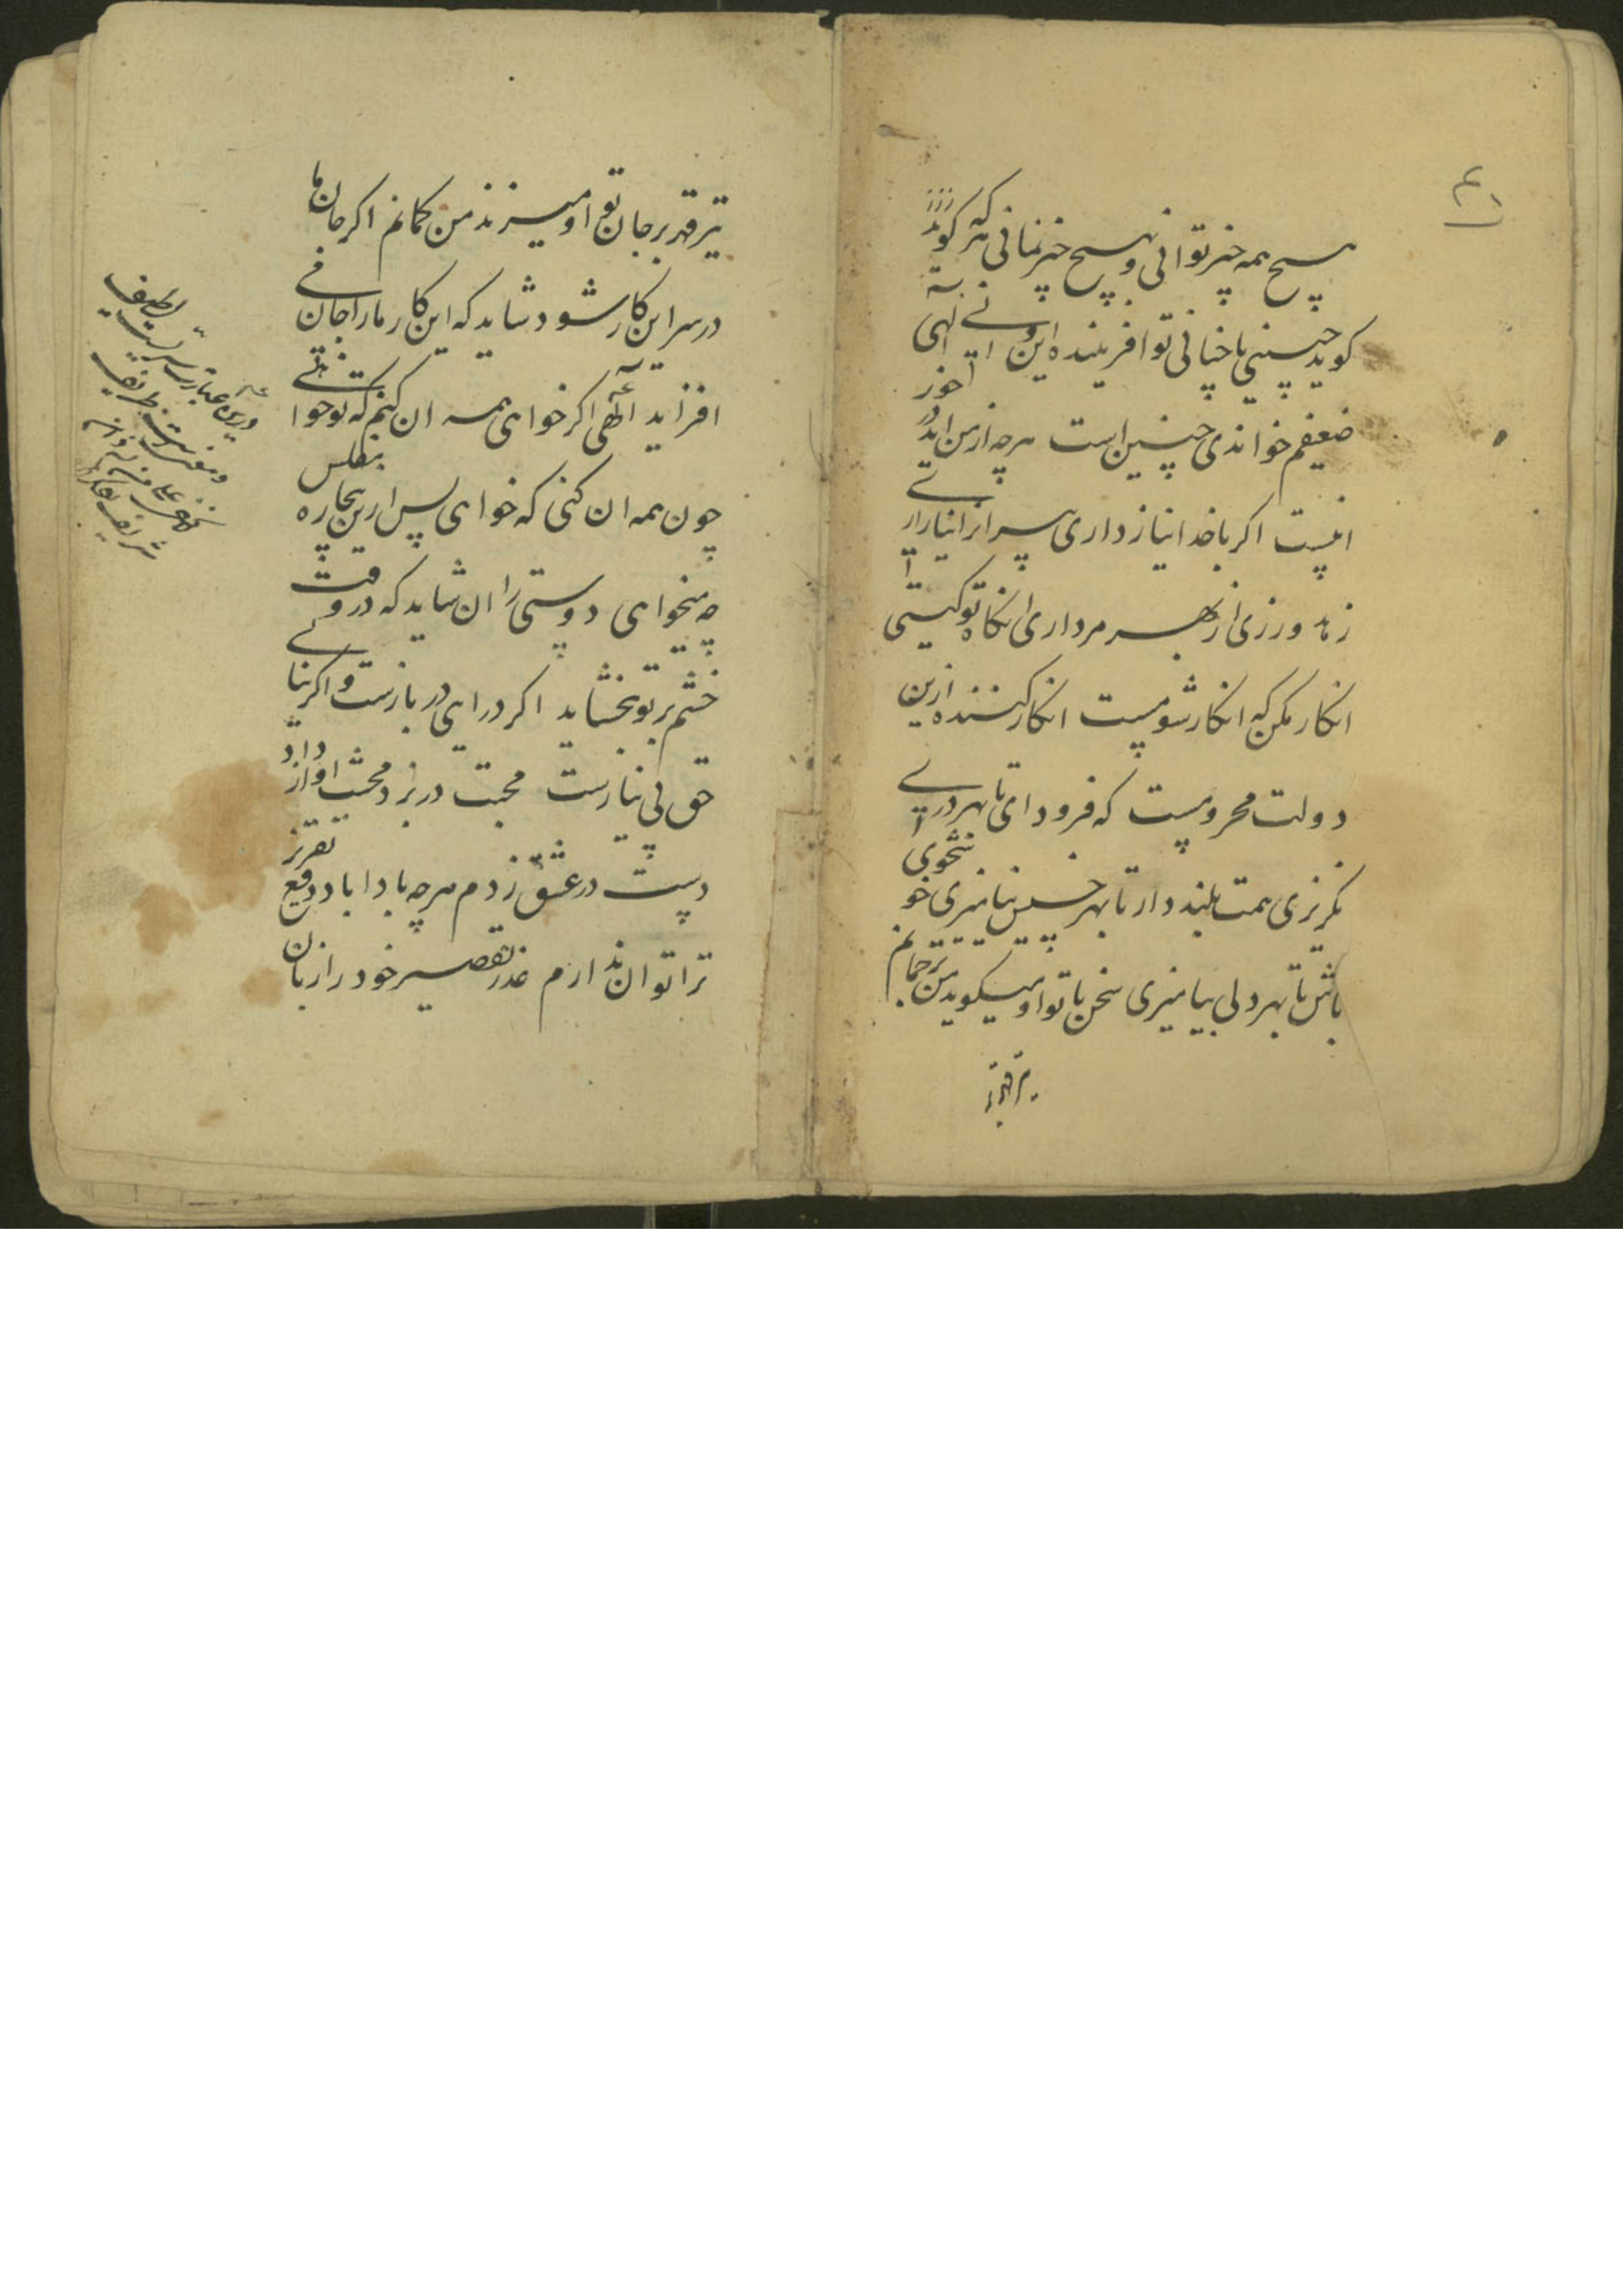 هیچ همه چیز توانی و بهیچ چیز نمانی هر که کوید
کوید چنینی یا چنانی تو آفریننده این و آنی الهی
ضعیفم خواندی چنین است هرچه از من آید در خور
آنیست اکر با خدا نیاز داری سر از انیا براری
زهد ورزی از بهر مرداری انکاه تو کیستی
انکار مکن که انکار شومیست انکار کننده ازین
دولت محرومیست که فرود ای تا بهر دری
نکریزی همت بلند دار تا بهر خس نیامیزی خوشخوی
باش تا بهر دلی بیامیزی سخن با تو او میکوید من ترجمانم
تیر قهر بر
تیر قهر بر جان تو او میزند من کمانم اکر جان ما
در سر این کار شود شاید که این کار ما را جان
افزاید الهی اکر خواهی همه آن کنیم که تو خواهی
چون همه ان کنی که خواهی پس از این بیچاره مفلس
چه میخواهی دوستی را ان شاید که در وقت
خشم بر تو بخشاید اکر درای در بازست و اکر نیائی
حق بی نیازست محبت در بزد محنت آواز داد
دست در عشق زدم هرچه بادا باد دفع تقدیر
ترا توان ندارم عذر تقصیر خود را زبان
درین عبارت سریست لطیف